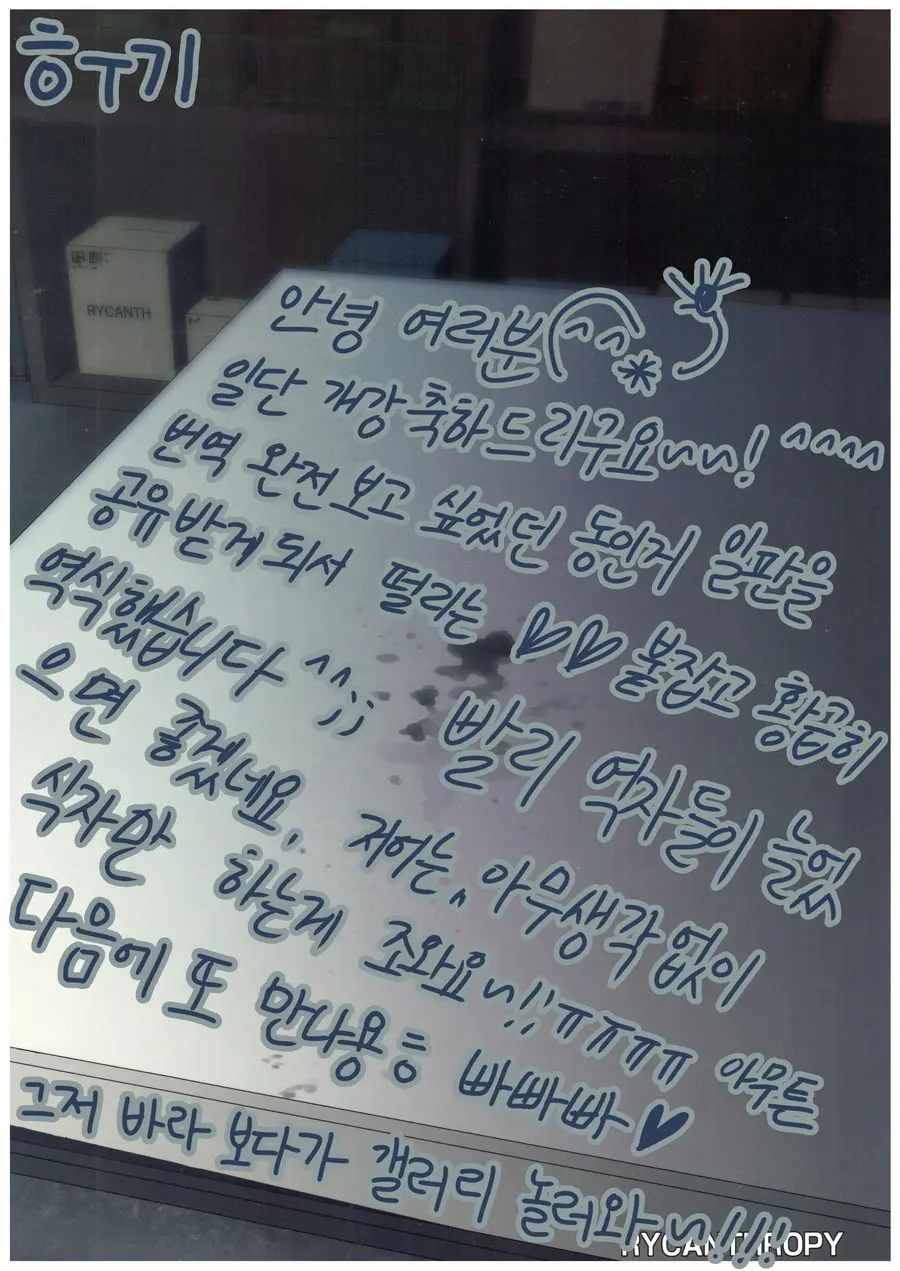 ㅎㅜ기
RYCANTH
안녕 여러분(^^*)
일단 개강 축하드리구요~~! ^^^^
번역 완전 보고 싶었던 동인지 일판을
공유 받게 되서 떨리는 ♡♡ 붙잡고 황급히
역식했습니다 ^^;; 빨리 역자들이 늘었
으면 좋겠네요, 저어는, 아무생각 없이
식자만 하는게 조와요~!!ㅠㅠㅠㅠ 아무튼
다음에 또 만나용ㅎ 빠빠빠♥
그저 바라 보다가 갤러리 놀러와~!!!
RYCANTHROPY